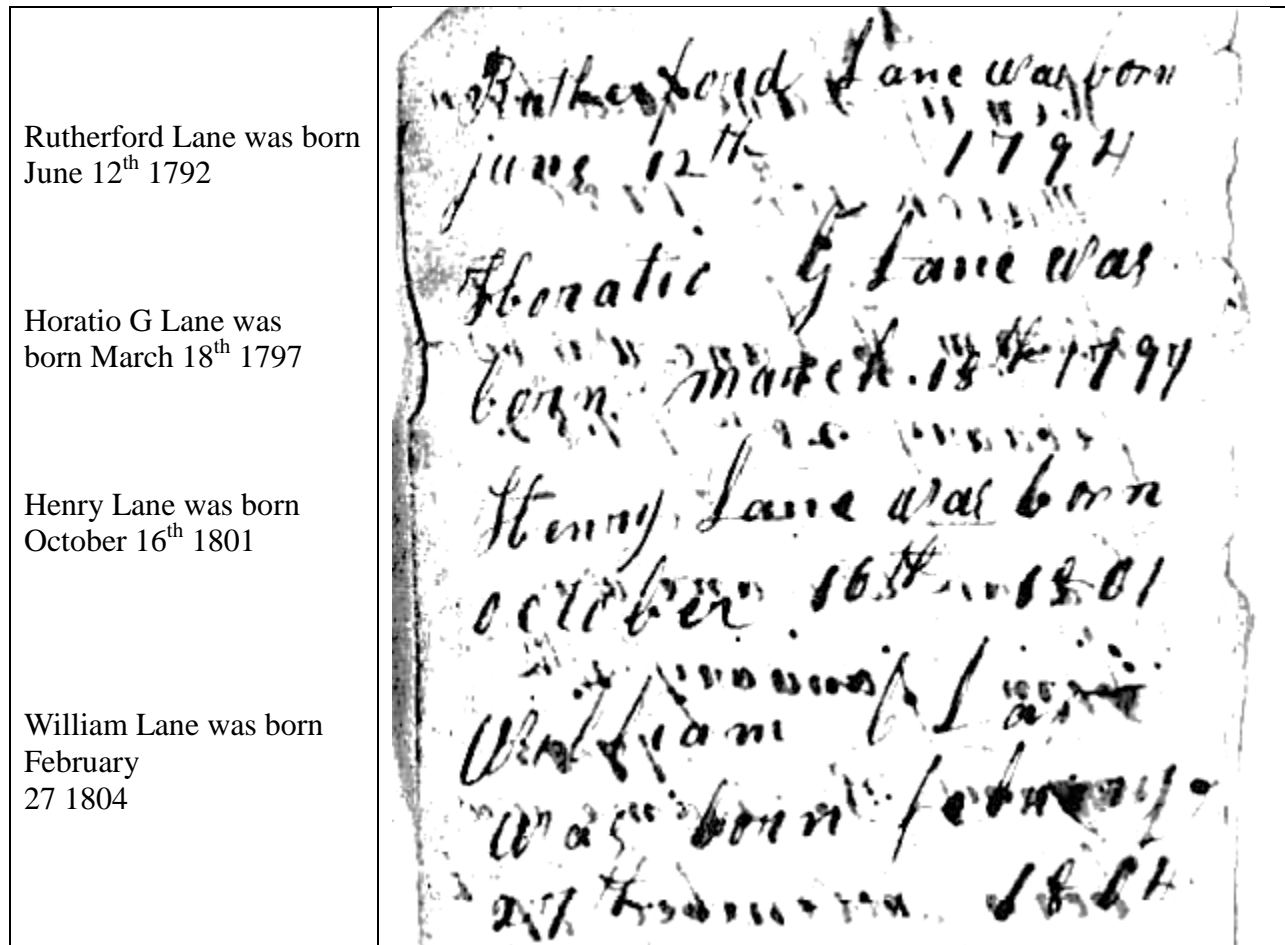 Rutherford Lane was born
June 12th 1792
Horatio G Lane was
born March 18th 1797
Henry Lane was born
October 16th 1801
William Lane was born
February
27 1804
Rutherford Lane was born
june 12th 1794
Horatio G Lane was
born march 18th 1797
Henry Lane was born
october 16th 1801
William Lane
was born
27th 1804